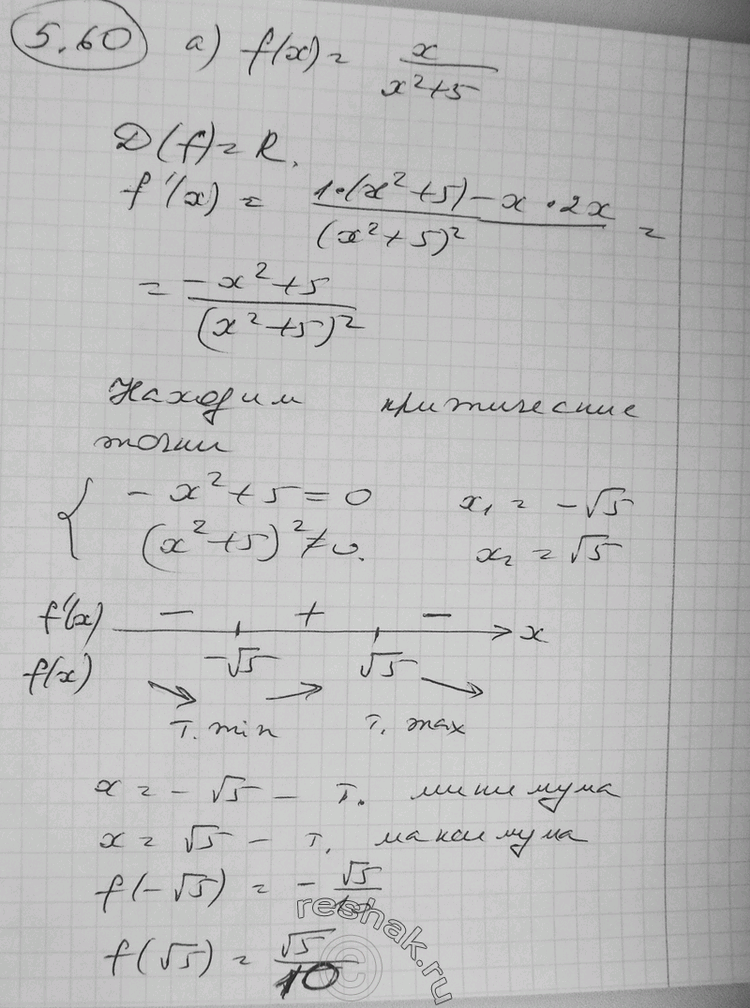 5.60 а) f(x) = x/(x²+5)
D(f) = R.
f'(x) = (1·(x²+5) - x·2x)/(x²+5)² =
= (-x²+5)/(x²+5)²
Находим критические
точки
{ -x²+5=0 x₁ = -√5
(x²+5)²≠0. x₂ = √5
f'(x) - + - x
-√5 √5
f(x)
т. min т. max
x = -√5 - т. минимума
x = √5 - т. максимума
f(-√5) = -√5/10
f(√5) = √5/10
reshak.ru